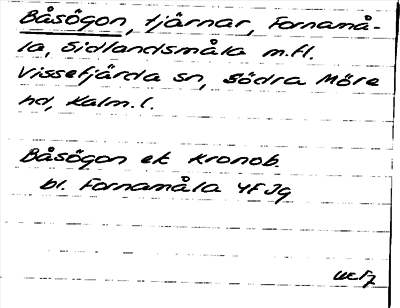 Båsögon, tjärnar, Fornamå-
la, Sidlandsmåla m.fl.
Vissefjärda sn, Södra Möre
hd, Kalm. l.
Båsögon ek Kronob.
bl. Fornamåla 4F Jg